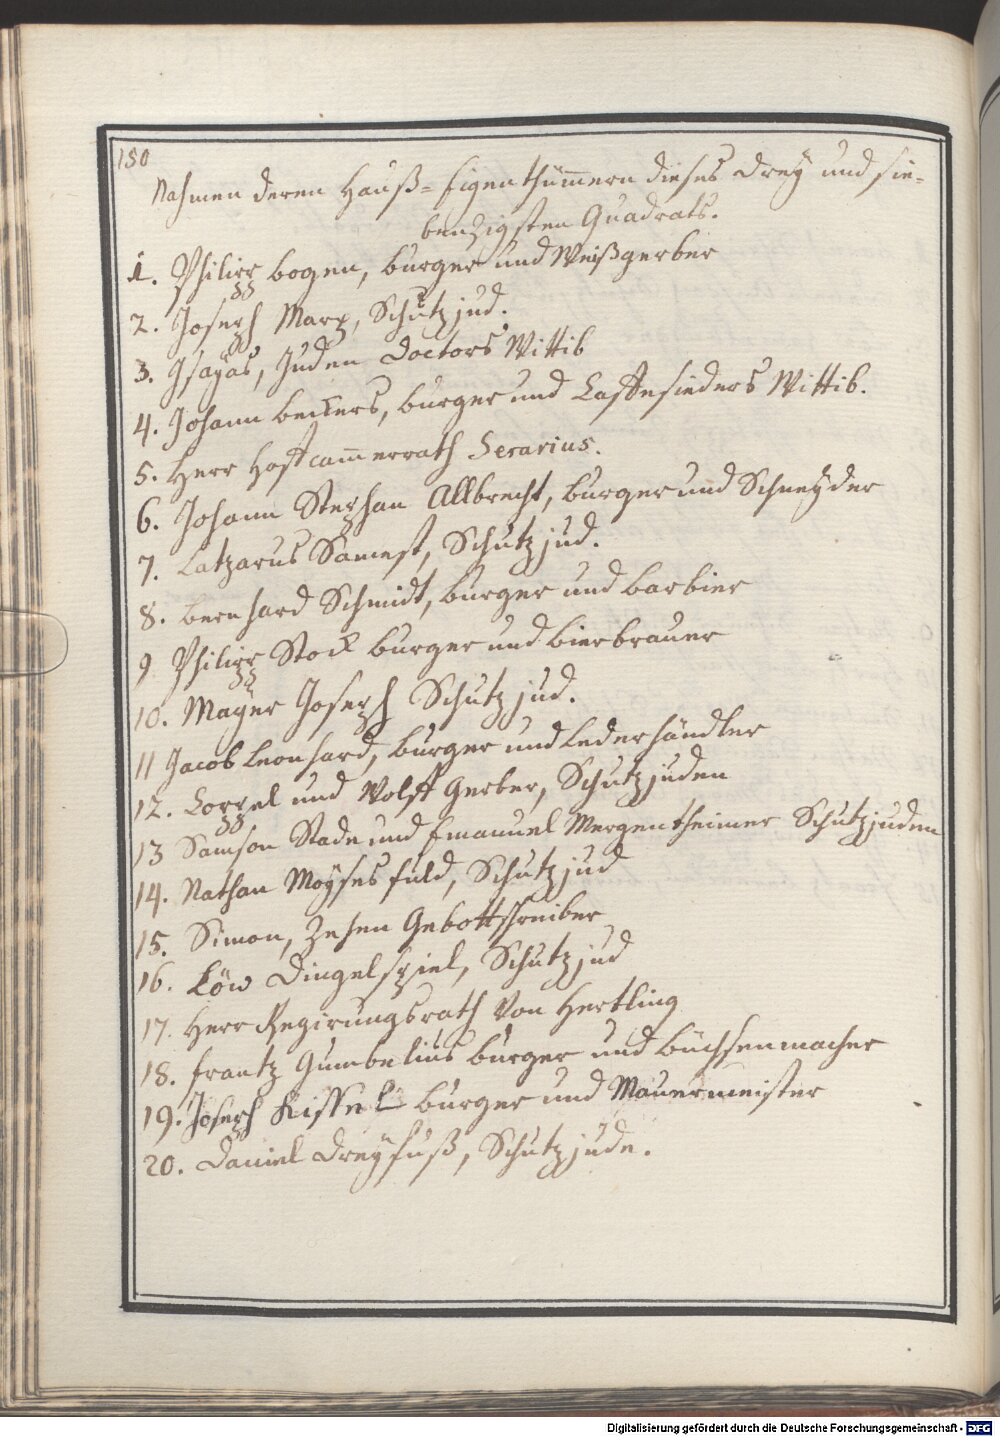 150
Nahmen deren Hauß=Eigenthümern dieses drey und sie-
benzigsten Quadrats.
1. Philipp bogen, burger und Weißgerber
2. Joseph Marx, Schutzjud.
3. Isayas, Juden Doctors Wittib
4. Johann beckers, burger und Caffesieders Wittib.
5. Herr Hoffcammerrath Serarius.
6. Johann Stephan Allbrecht, burger und Schneyder
7. Latzarus Samest, Schutzjud.
8. bernhard Schmidt, burger und barbier
9 Philipp Stock burger und bierbrauer
10. Mayer Joseph Schutzjud.
11 Jacob Leonhard, burger und Lederhändler
12. Coppel und Wolff Gerber, Schutzjuden
13 Samson Stade und Emanuel Mergentheimer Schutzjuden
14. Nathan Moyses fuld, Schutzjud
15. Simon, Zehen Gebottschreiber
16. Löw Dingelspiel, Schutzjud
17. Herr Regirungsrath Von Hertling
18. frantz Gumbelius burger und büchsenmacher
19. Joseph Kissel burger und Mauermeister
20. Daniel Dreyfuß, Schutzjude.
Digitalisierung gefördert durch die Deutsche Forschungsgemeinschaft - DFG